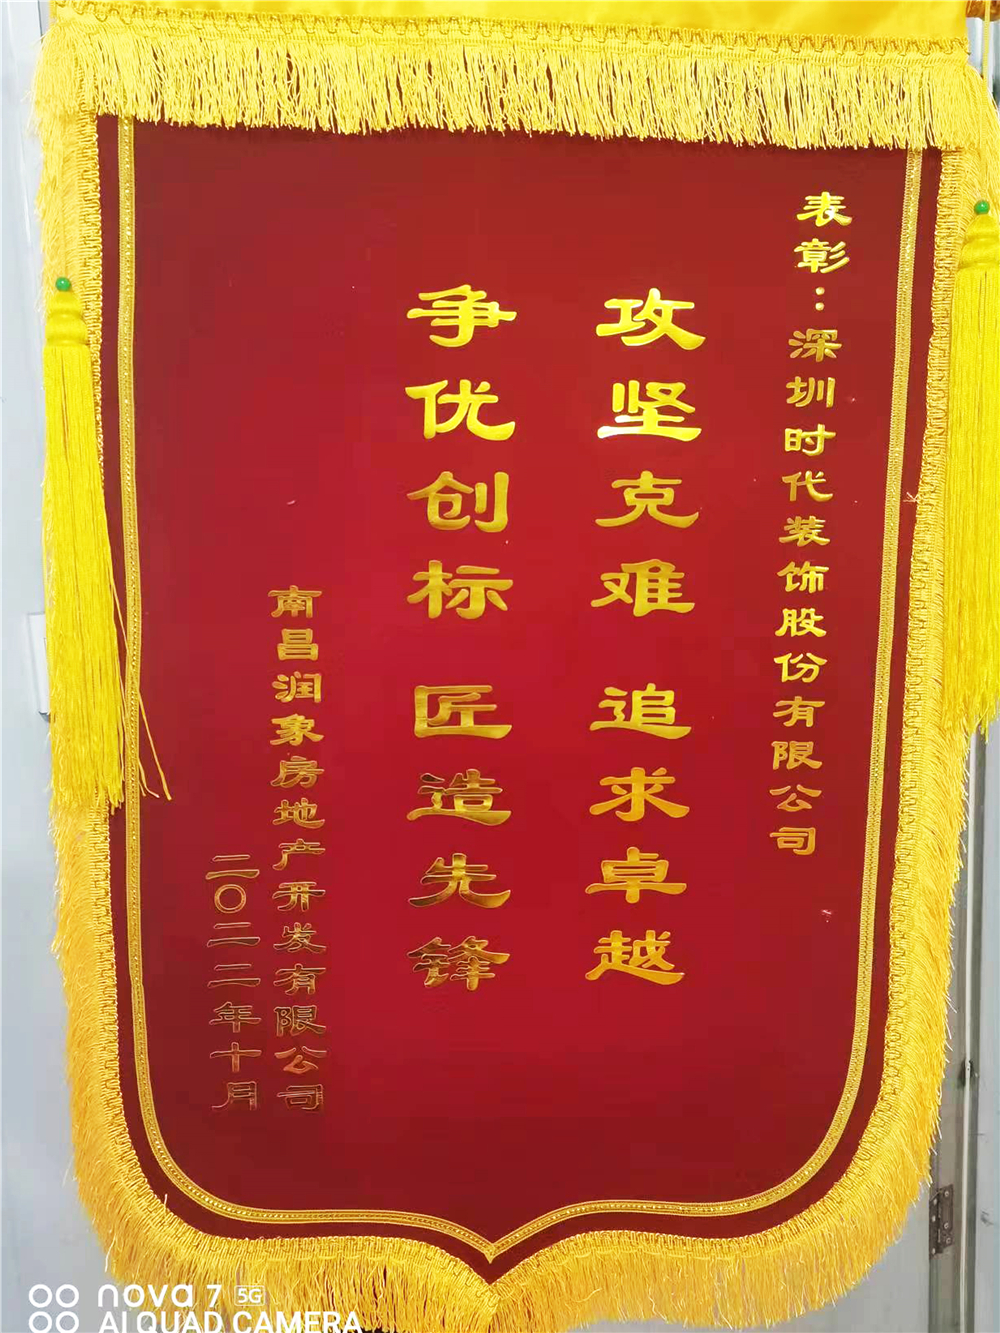 表彰：深圳时代装饰股份有限公司
攻坚克难 追求卓越
争优创标 匠造先锋
南昌润象房地产开发有限公司
二〇二二年十月
nova 7 5G
AI QUAD CAMERA